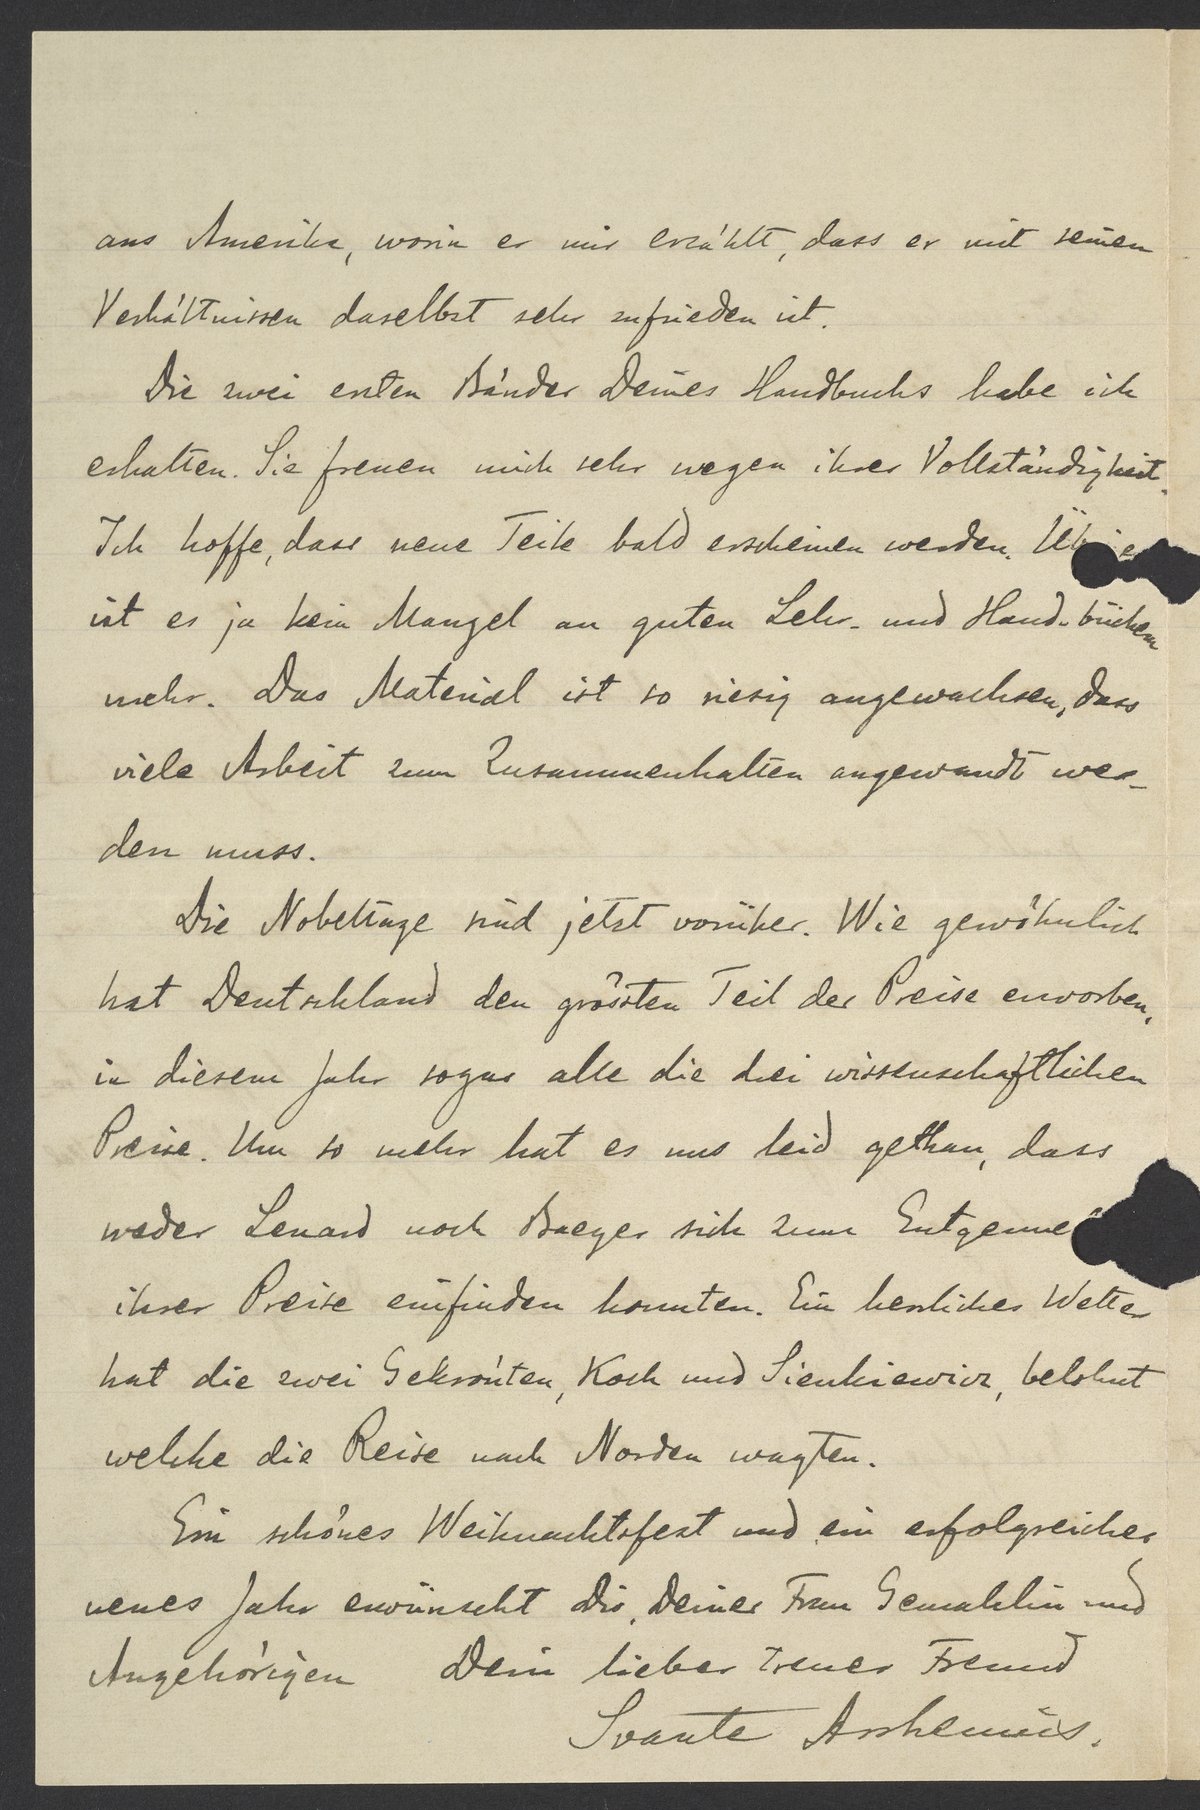 aus Amerika, worin er mir erzählt, dass er mit seinen
Verhältnissen daselbst sehr zufrieden ist.
Die zwei ersten Bänder Deines Handbuchs habe ich
erhalten. Sie freuen mich sehr wegen ihrer Vollständigkeit.
Ich hoffe, dass neue Teile bald erscheinen werden.
ist es ja kein Mangel an guten Lehr- und Hand-büchern
mehr. Das Material ist so riesig angewachsen, dass
viele Arbeit zum Zusammenhalten angewandt wer-
den muss.
Die Nobeltage sind jetzt vorüber. Wie gewöhnlich
hat Deutschland den grössten Teil der Preise erworben,
in diesem Jahr sogar alle die drei wissenschaftlichen
Preise. Um so mehr hat es uns leid gethan, dass
weder Lenard noch Baeyer sich zum
ihrer Preise einfinden konnten. Ein herrliches Wetter
hat die zwei Gekrönten, Koch und Sienkiewicz, belohnt
welche die Reise nach Norden wagten.
Ein schönes Weihnachtsfest und ein erfolgreiches
neues Jahr erwünscht Dir, Deiner Frau Gemahlin und
Angehörigen Dein lieber treuer Freund
Svante Arrhenius.